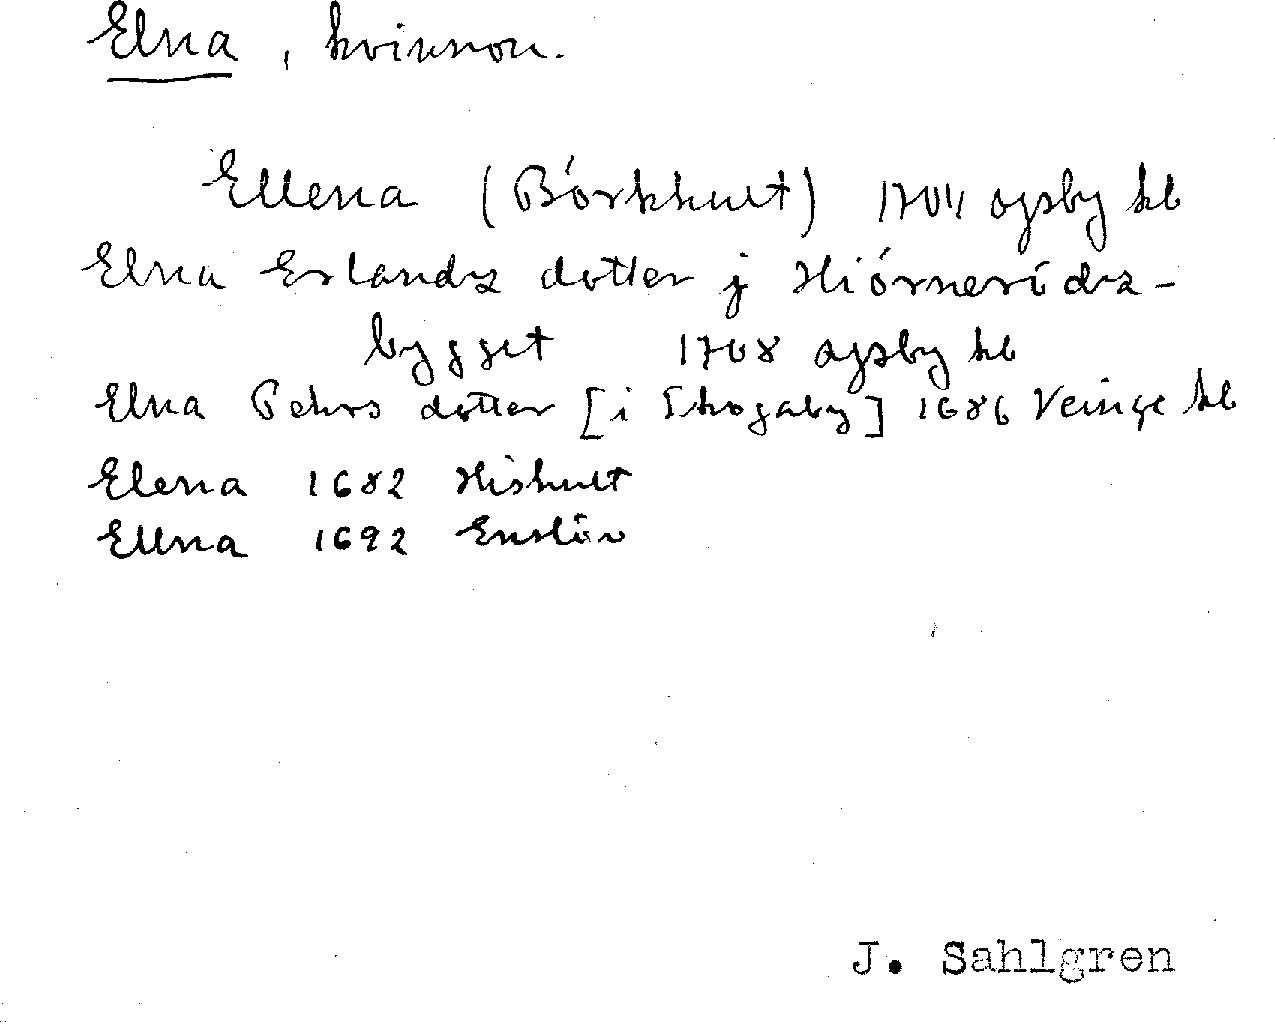 Elna, kvinnon.
Ellena (Bórkhult) 1704 Øysby kb
Elna Erlandz dotter j Hiórnerídza-
bygget 1708 Øysby kb
Elna Pehrs dotter [i Skogaby] 1686 Veinge kb
Elena 1682 Hishult
Ellna 1692 Enslöv
J. Sahlgren